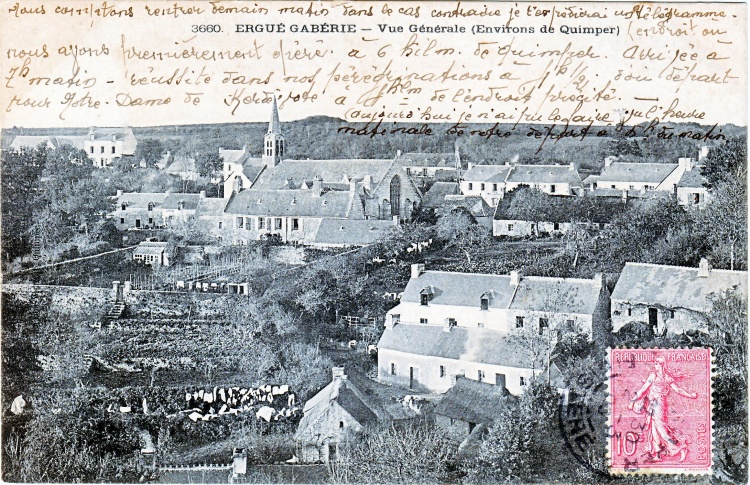 nous comptons rentrer demain matin dans le cas contraire je t'expédierai un télégramme.
3660. ERGUÉ GABÉRIE — Vue Générale (Environs de Quimper)
(endroit ou
nous avons premièrement opéré. à 6 kilm. de Quimper. Arrivée à
7h matin - réussite dans nos pérégrinations à 1h 1/2. son départ
pour Notre-Dame de Kerdévote à 4 klm de l'endroit précité -
aujourd'hui je n'ai pu le faire qu'à l'heure
matinale de notre départ à 6h du matin
RÉPUBLIQUE FRANÇAISE
10
POSTES